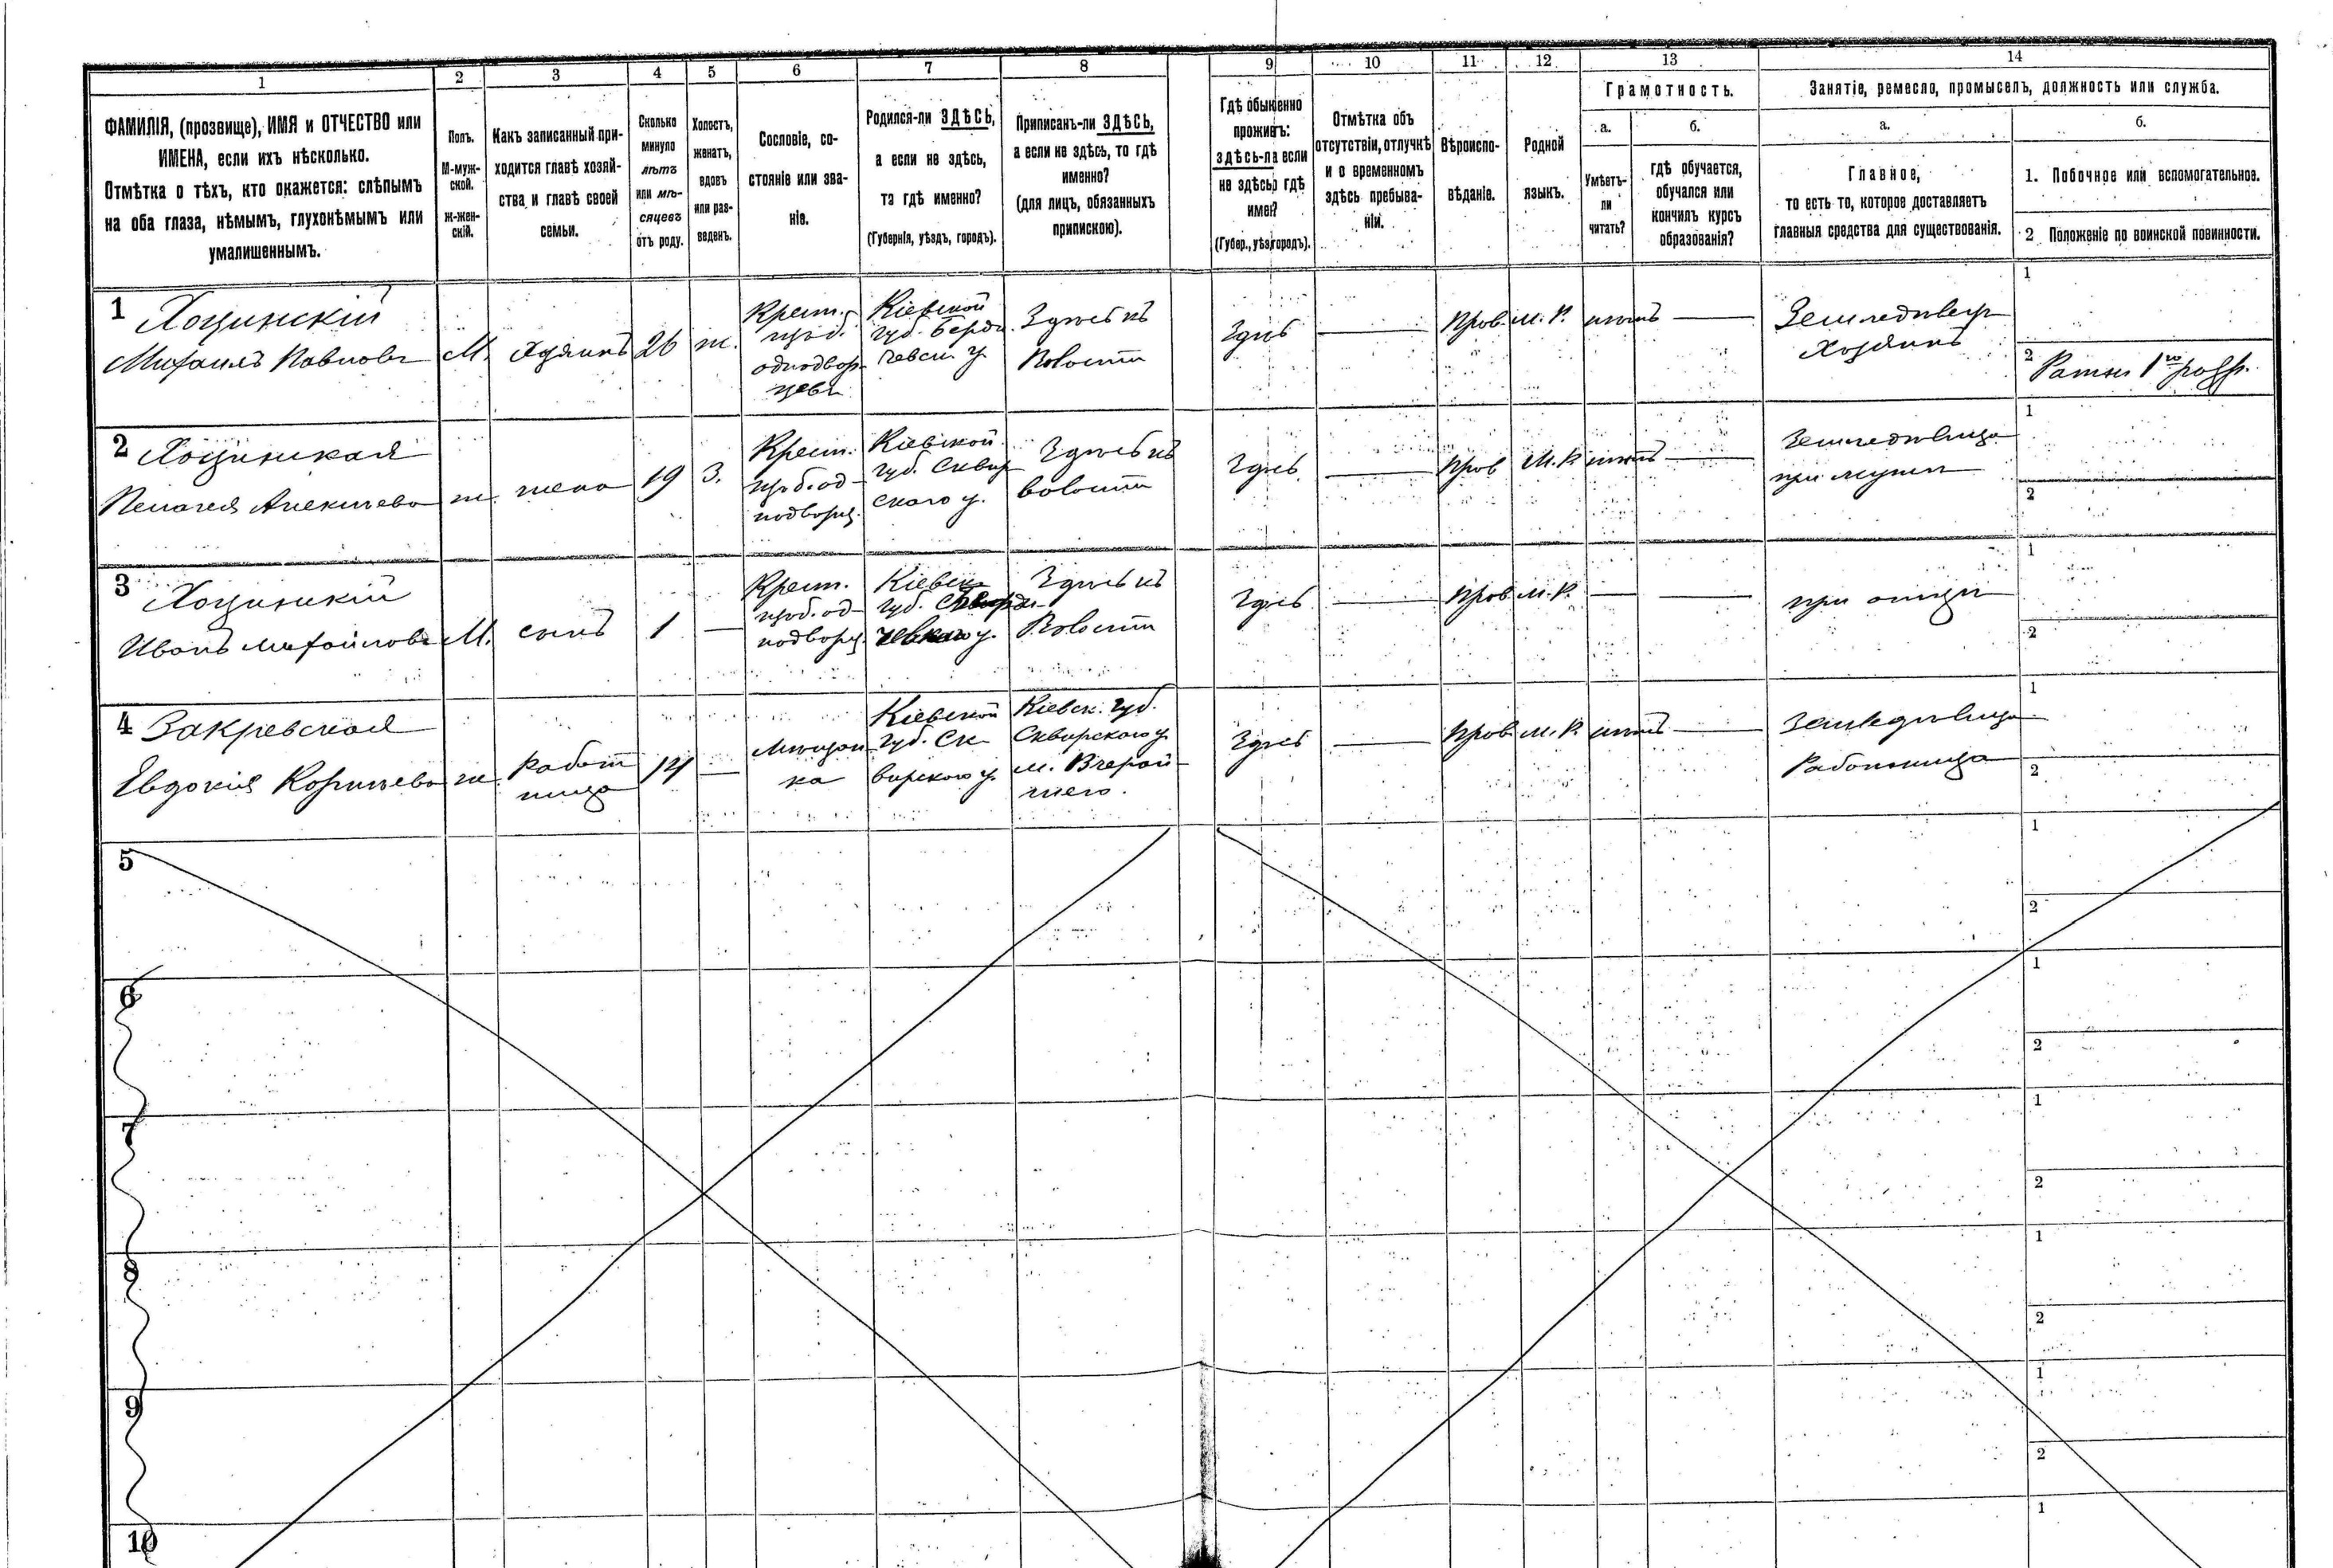 1 2 3 4 5 6 7 8 9 10 11 12 13 14
ФАМИЛІЯ, (прозвище), ИМЯ и ОТЧЕСТВО или
ИМЕНА, если ихъ нѣсколько.
Отмѣтка о тѣхъ, кто окажется: слѣпымъ
на оба глаза, нѣмымъ, глухонѣмымъ или
умалишеннымъ.
Полъ.
М-муж-
ской.
ж-жен-
скій.
Какъ записанный при-
ходится главѣ хозяй-
ства и главѣ своей
семьи.
Сколько
минуло
лѣтъ
или мѣ-
сяцевъ
отъ роду.
Холостъ,
женатъ,
вдовъ
или раз-
веденъ.
Сословіе, со-
стояніе или зва-
ніе.
Родился-ли ЗДѢСЬ,
а если не здѣсь,
то гдѣ именно?
(Губернія, уѣздъ, городъ).
Приписанъ-ли ЗДѢСЬ,
а если не здѣсь, то гдѣ
именно?
(для лицъ, обязанныхъ
припискою).
Гдѣ обыкенно
проживъ:
здѣсь-ла если
не здѣсь, гдѣ
имен?
(Губер., уѣз, городъ).
Отмѣтка объ
отсутствіи, отлучкѣ
и о временномъ
здѣсь пребыва-
ніи.
Вѣроиспо-
вѣданіе.
Родной
языкъ.
Грамотность.
а.
Умѣетъ-
ли
читать?
б.
гдѣ обучается,
обучался или
кончилъ курсъ
образованія?
Занятіе, ремесло, промыселъ, должность или служба.
а.
Главное,
то есть то, которое доставляетъ
главныя средства для существованія.
б.
1. Побочное или вспомогательное.
2 Положеніе по воинской повинности.
1 Хощинскій
Михаилъ Павловъ
М.
Хозяинъ
26
ж.
Крест.
одновор-
цевъ
Кіевской
губ. Берди
чевск. у.
Здѣсь къ
Волости
Здѣсь
Прав.
М. Р.
нѣтъ
Земледѣлец
Хозяинъ
1
2 Ратник 1го разр.
2 Хощинская
Пелагея Алексѣева
ж.
жена
19
З.
Крест.
из б. од-
нодворц.
Кіевской
губ. Сквир
скаго у.
Здѣсь къ
волости
Здѣсь
Прав
М. Р.
нѣтъ
Земледѣлица
при мужѣ
1
2
3 Хощинскій
Иванъ Михайловъ
М.
сынъ
1
Крест.
из б. од-
нодворц.
Кіевск.
губ.
Здѣсь къ
Волости
Здѣсь
Прав.
М. Р.
при отцѣ
1
2
4 Закревская
Евдокія Корнѣева
ж.
Работ
ница
14
Мѣщан
ка
Кіевской
губ. Ск
вирского у.
Кіевск. губ.
Сквирского у.
м. Вчерай-
шего.
Здѣсь
Прав.
М. Р.
нѣтъ
Земледѣлица
Работница
1
2
5
1
2
6
1
2
7
1
2
8
1
2
9
1
2
10
1